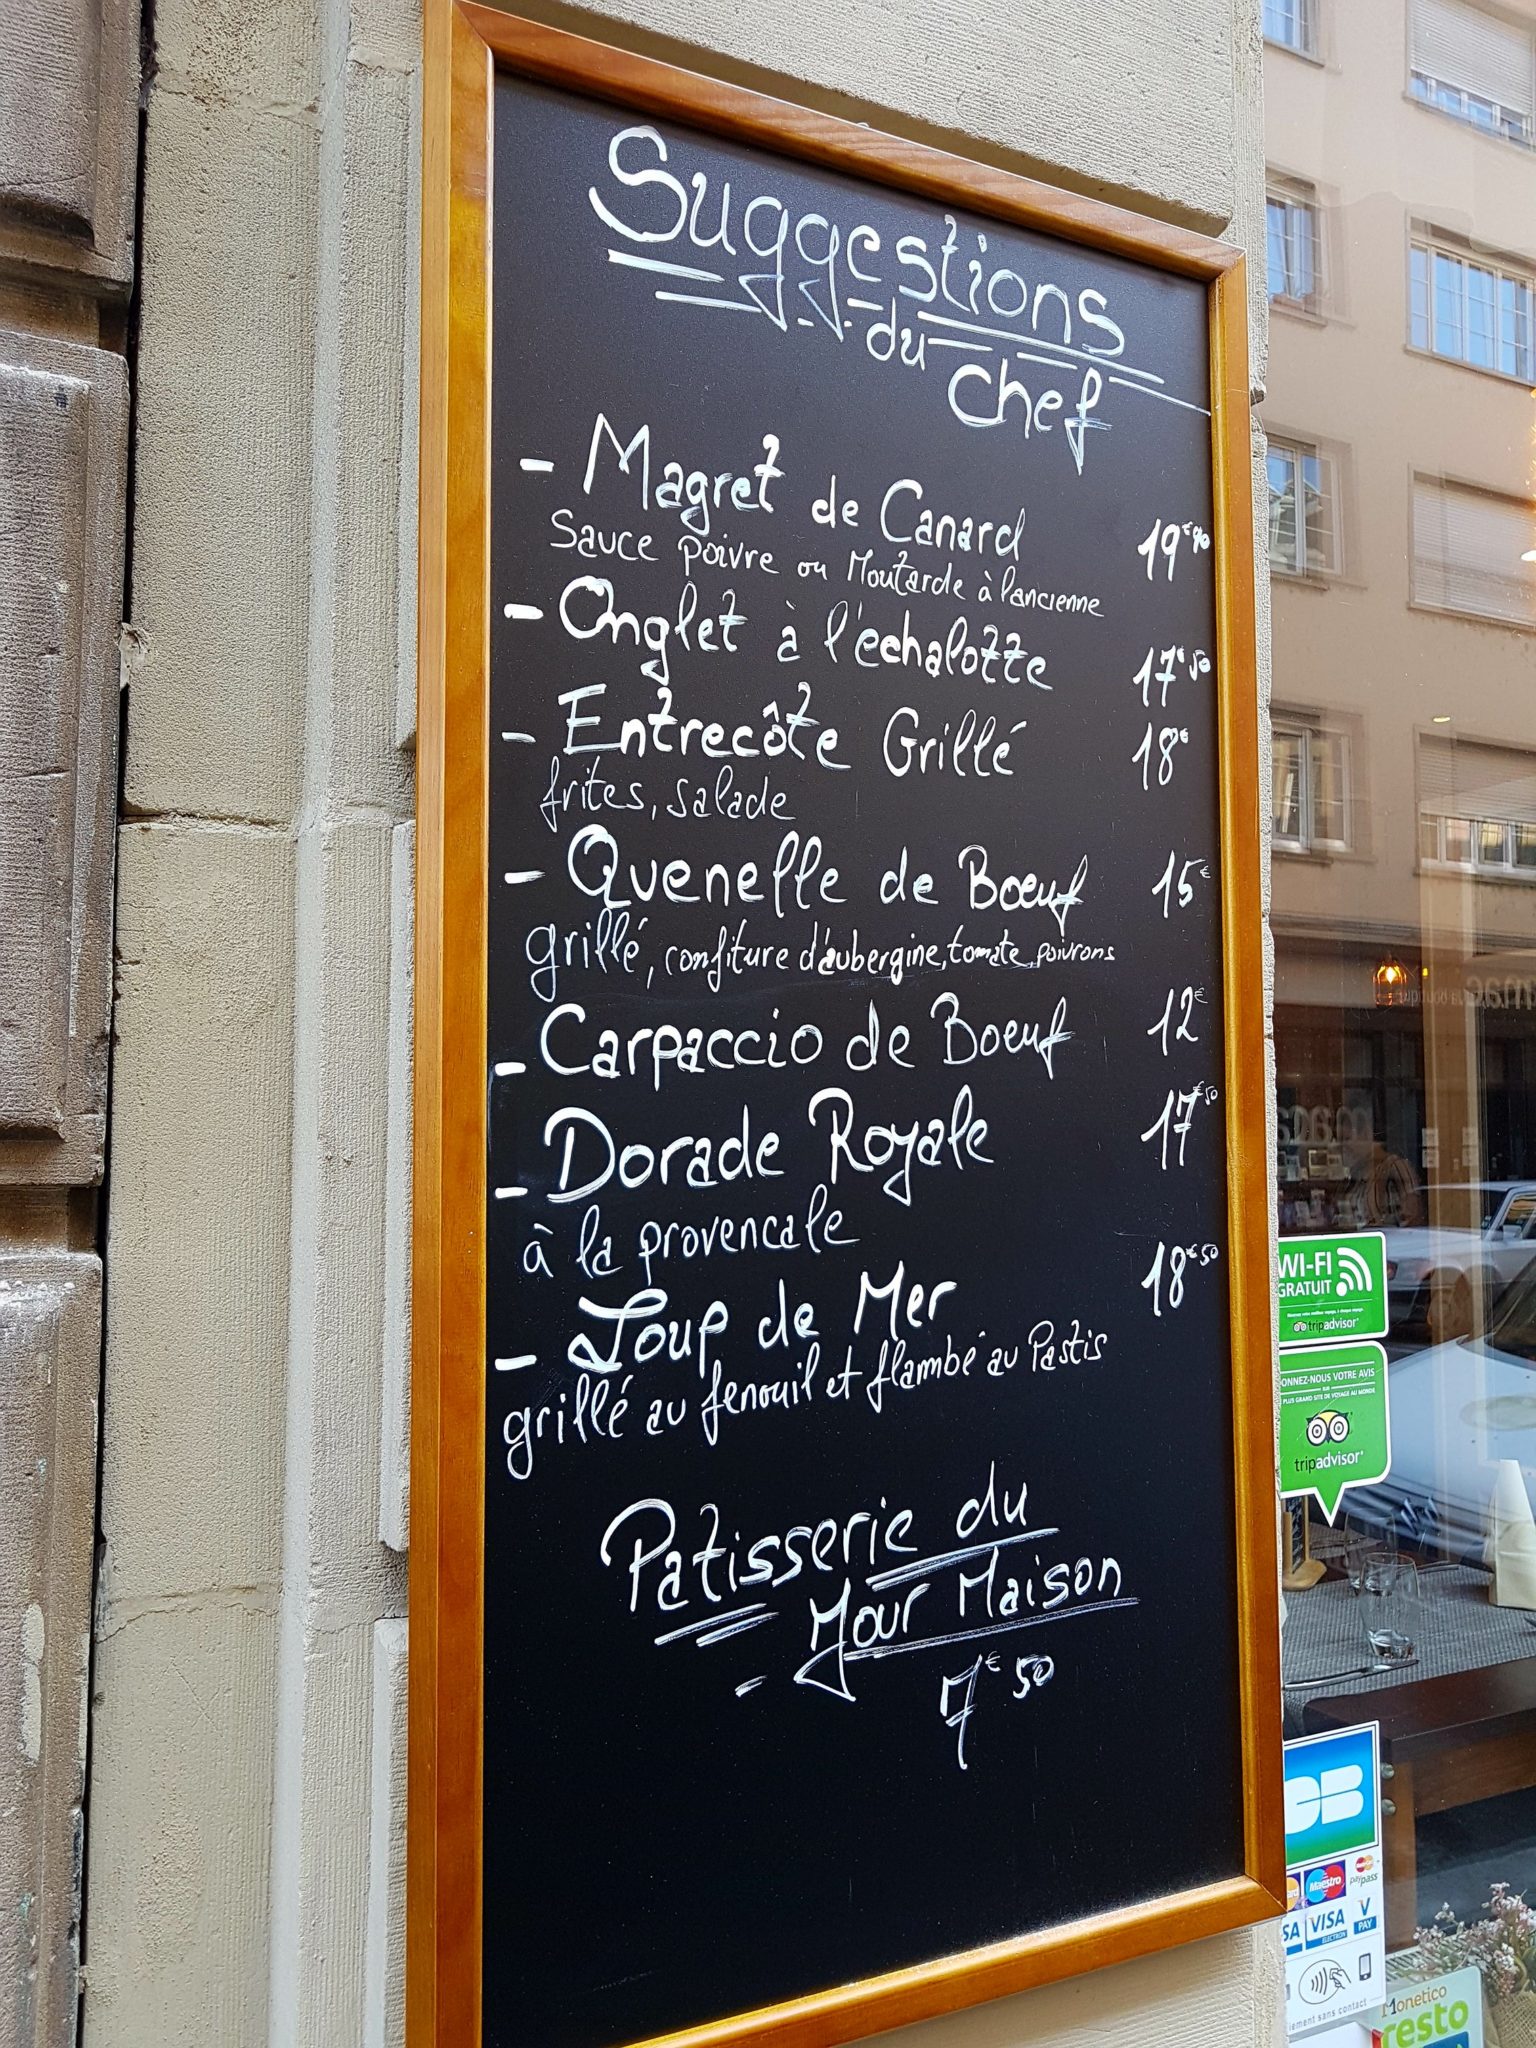 Suggestions
du
Chef
- Magret de Canard 19€90
Sauce poivre ou Moutarde à l'ancienne
- Onglet à l'échalotte 17€50
- Entrecôte Grillé 18€
frites, salade
- Quenelle de Boeuf 15€
grillé, confiture d'aubergine, tomate, poivrons
- Carpaccio de Boeuf 12€
- Dorade Royale 17€50
à la provencale
- Loup de Mer 18€50
grillé au fenouil et flambé au Pastis
Patisserie du
Jour Maison
- 7€50
WI-FI
GRATUIT
tripadvisor
ONNEZ-NOUS VOTRE AVIS
SUR
PLUS GRAND SITE DE VOYAGE AU MONDE
tripadvisor
CB
Maestro
paypass
SA
VISA
ELECTRON
V
PAY
iement sans contact
Monetico
resto